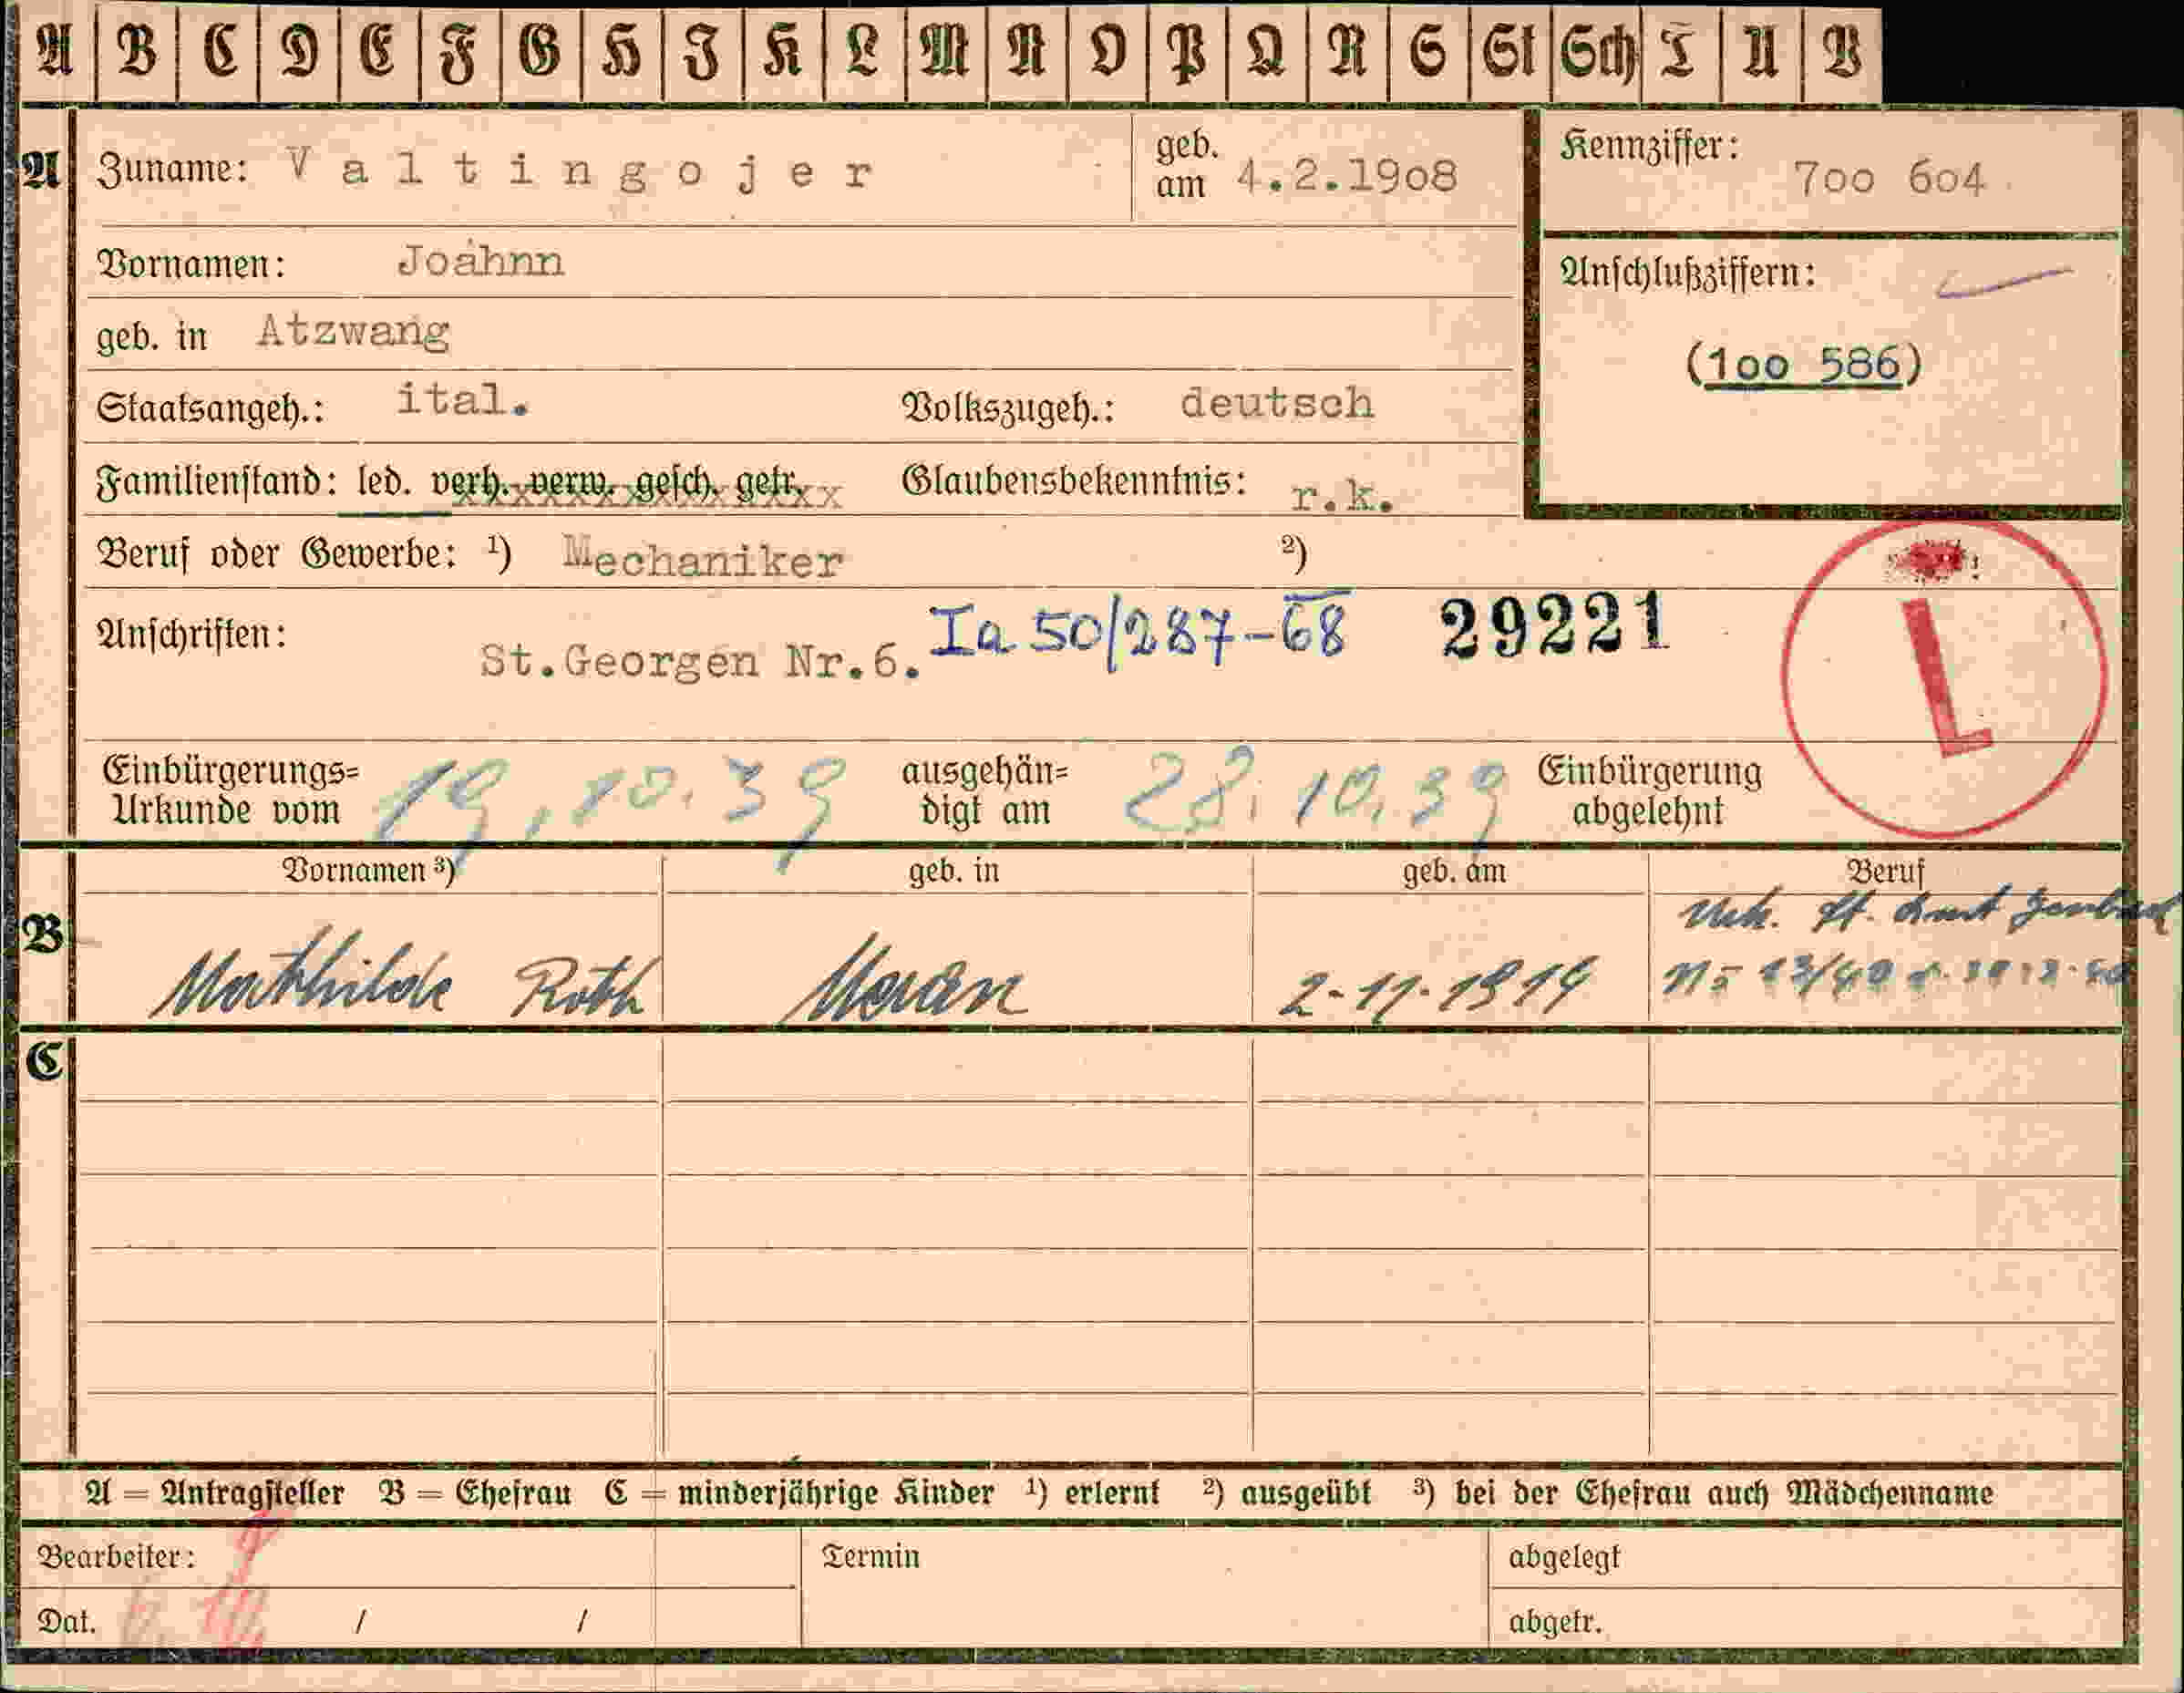 A B C D E F G H I K L M N O P Q R S St Sch T U V
A Zuname: Valtingojer geb. am 4.2.1908 Kennziffer: 700 604
Vornamen: Joahnn Anschlußziffern:
geb. in Atzwang (100 586)
Staatsangeh.: ital. Volkszugeh.: deutsch
Familienstand: led. verh. verw. gesch. getr. Glaubensbekenntnis: r.k.
Beruf oder Gewerbe: ¹) Mechaniker ²)
Anschriften: St.Georgen Nr.6. Ia 50/287-68 29221 L
Einbürgerungs= ausgehän= Einbürgerung
Urkunde vom 19.10.39 digt am 28.10.39 abgelehnt
Vornamen ³) geb. in geb. am Beruf
B Mathhilde Roth Meran 2-11-1914
C
A = Antragsteller B = Ehefrau C = minderjährige Kinder ¹) erlernt ²) ausgeübt ³) bei der Ehefrau auch Mädchenname
Bearbeiter: Termin abgelegt
Dat. / / abgetr.